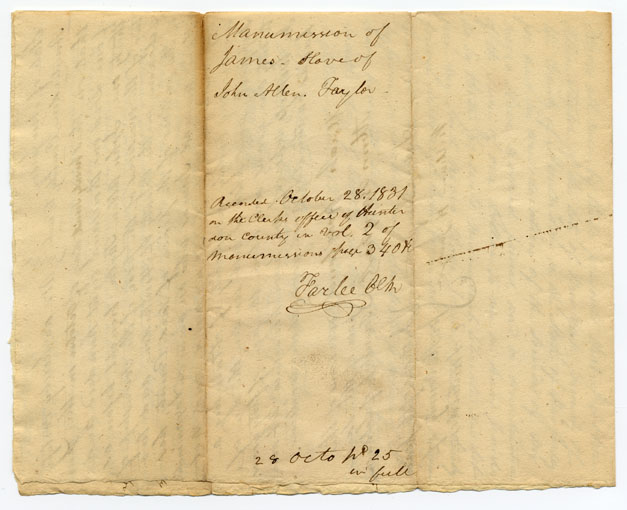 Manumission of
James - Slave of
John Allen. Taylor -
Recorded October 28. 1831
in the Clerks office of Hunter
don County in Vol. 2 of
Manumissions page 340
Farlee Clk
28 Octo pd 25
in full